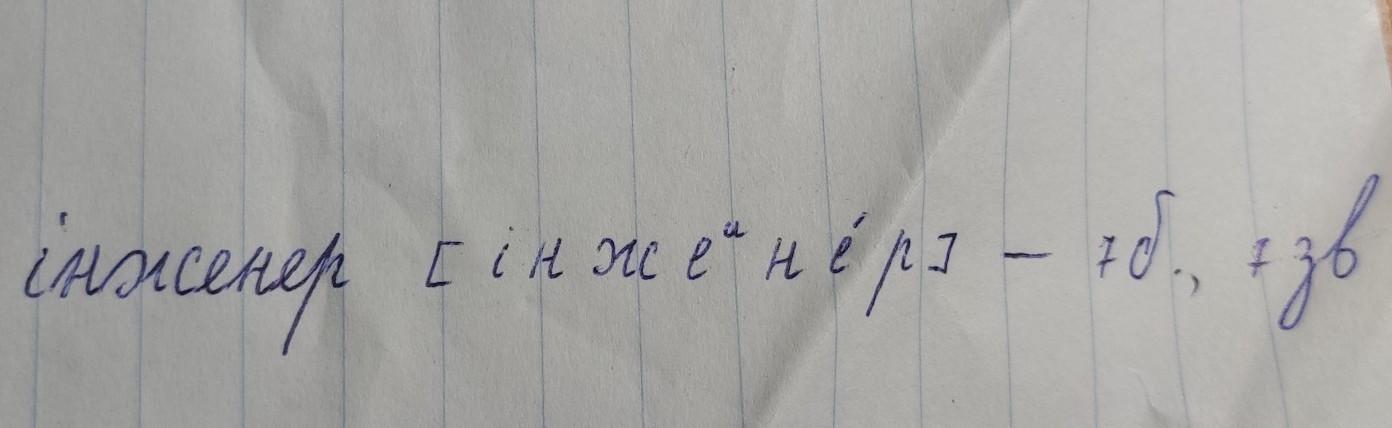 інженер [інжеᶦнéр] – 7б., 7зв